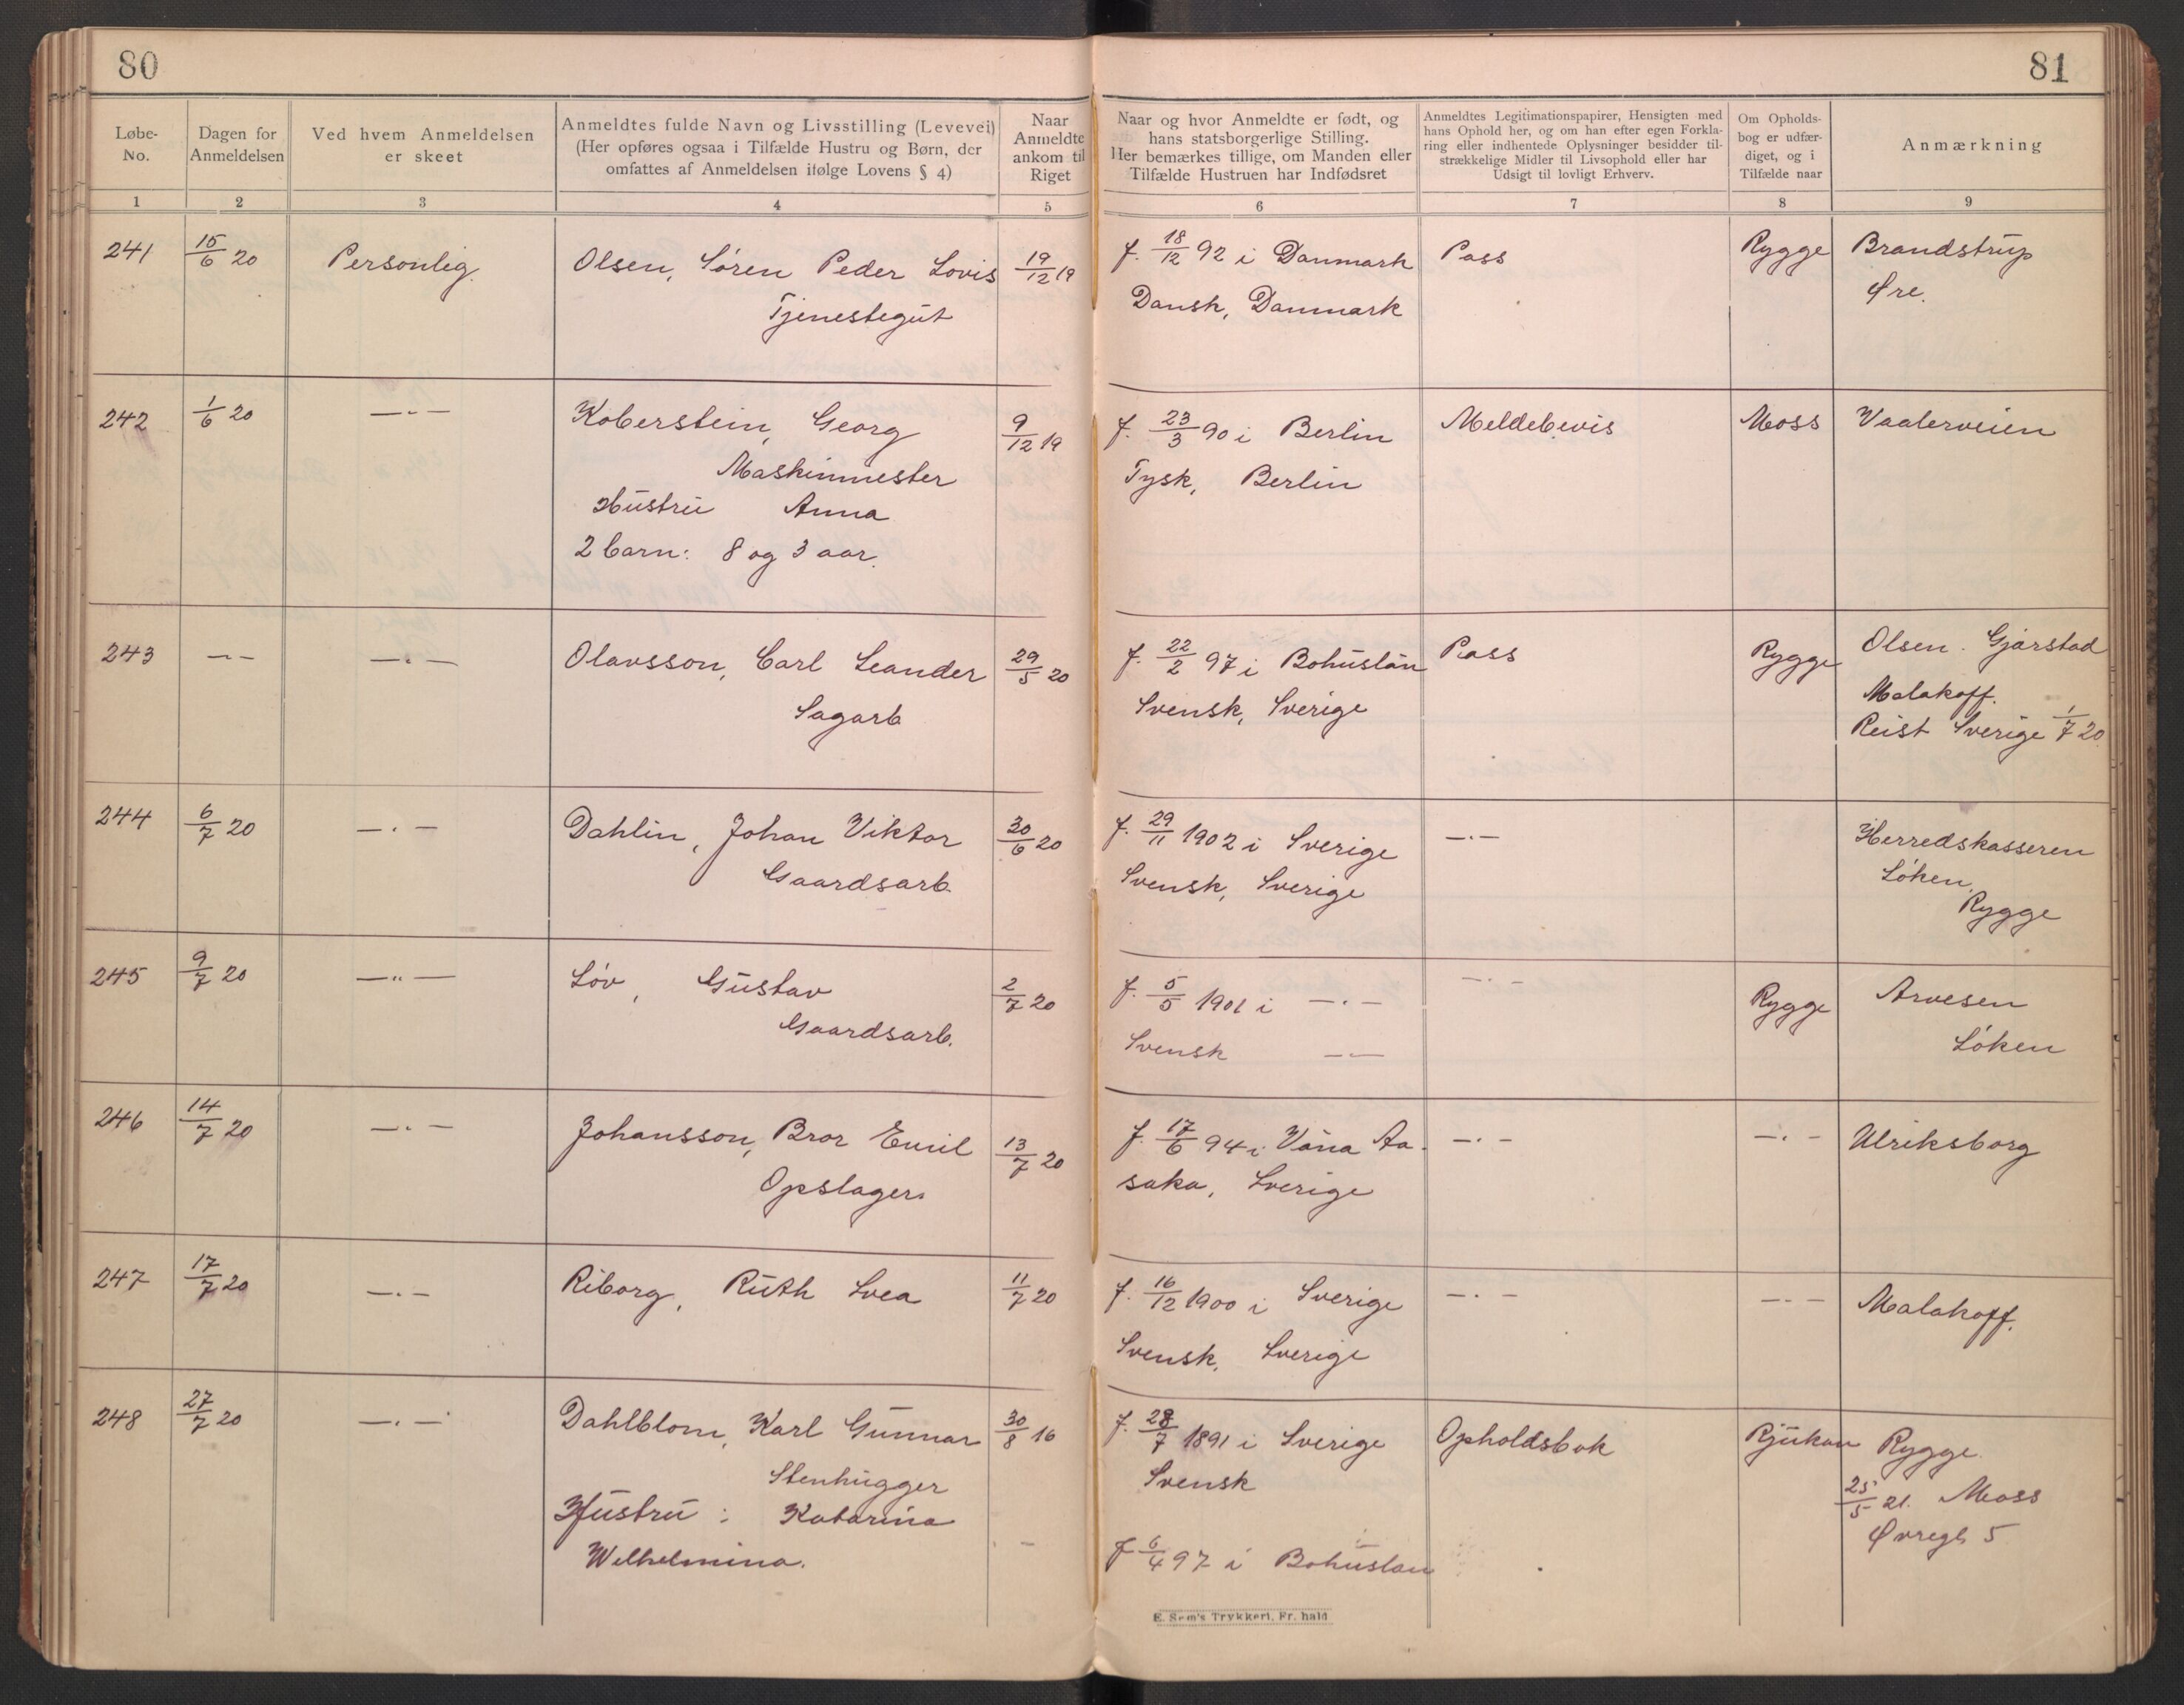 80
81
Løbe-No.
Dagen for Anmeldelsen
Ved hvem Anmeldelsen er skeet
Anmeldtes fulde Navn og Livsstilling (Levevei)
(Her opføres ogsaa i Tilfælde Hustru og Børn, der
omfattes af Anmeldelsen ifølge Lovens § 4)
Naar Anmeldte ankom til Riget
Naar og hvor Anmeldte er født, og
hans statsborgerlige Stilling.
Her bemærkes tillige, om Manden eller
Tilfælde Hustruen har Indfødsret
Anmeldtes Legitimationspapirer, Hensigten med
hans Ophold her, og om han efter egen Forkla-
ring eller indhentede Oplysninger besidder til-
strækkelige Midler til Livsophold eller har
Udsigt til lovligt Erhverv.
Om Opholds-
bog er udfær-
diget, og i
Tilfælde naar
Anmærkning
1 2 3 4 5 6 7 8 9
241 15/6 20 Personlig. Olsen, Søren Peder Lovis 19/12 19 f. 18/12 92 i Danmark Pass Rygge Brandstrup
Tjenestegut Dansk, Danmark Øre.
242 1/6 20 —"— Koberstein, Georg 9/12 19 f. 23/3 90 i Berlin Meldebevis Moss Vaalerveien
Maskinmester Tysk, Berlin
Hustru Anna
2 barn: 8 og 3 aar.
243 —"— —"— Olavsson, Carl Leander 29/5 20 f. 22/2 97 i Bohuslän Pass Rygge Olsen. Gjarstad
Sagarb Svensk, Sverige Malakoff.
Reist Sverige 1/7 20.
244 6/7 20 —"— Dahlin, Johan Viktor 30/6 20 f. 29/11 1902 i Sverige —"— Herredskasseren
Gaardsarb. Svensk, Sverige Löken,
Rygge
245 9/7 20 —"— Löv, Gustav 2/7 20 f. 5/5 1901 i —"— —"— Rygge Arvesen
Gaardsarb. Svensk —"— Löken
246 14/7 20 —"— Johansson, Bror Emil 13/7 20 f. 17/6 94 i Väna Aa- —"— —"— Ulriksborg
Opslager. saka, Sverige
247 17/7 20 —"— Riborg, Ruth Svea 11/7 20 f. 16/12 1900 i Sverige —"— —"— Malakoff.
Svensk, Sverige
248 27/7 20 —"— Dahlblom, Karl Gunnar 30/8 16 f. 28/7 1891 i Sverige Opholdsbok Rjukan Rygge
Stenhugger Svensk 25/5 21. Moss
Hustru: Katarina Øvregt 5
Wilhelmina. f 6/4 97 i Bohuslan
E. Sem's Trykkeri, Fr. hald